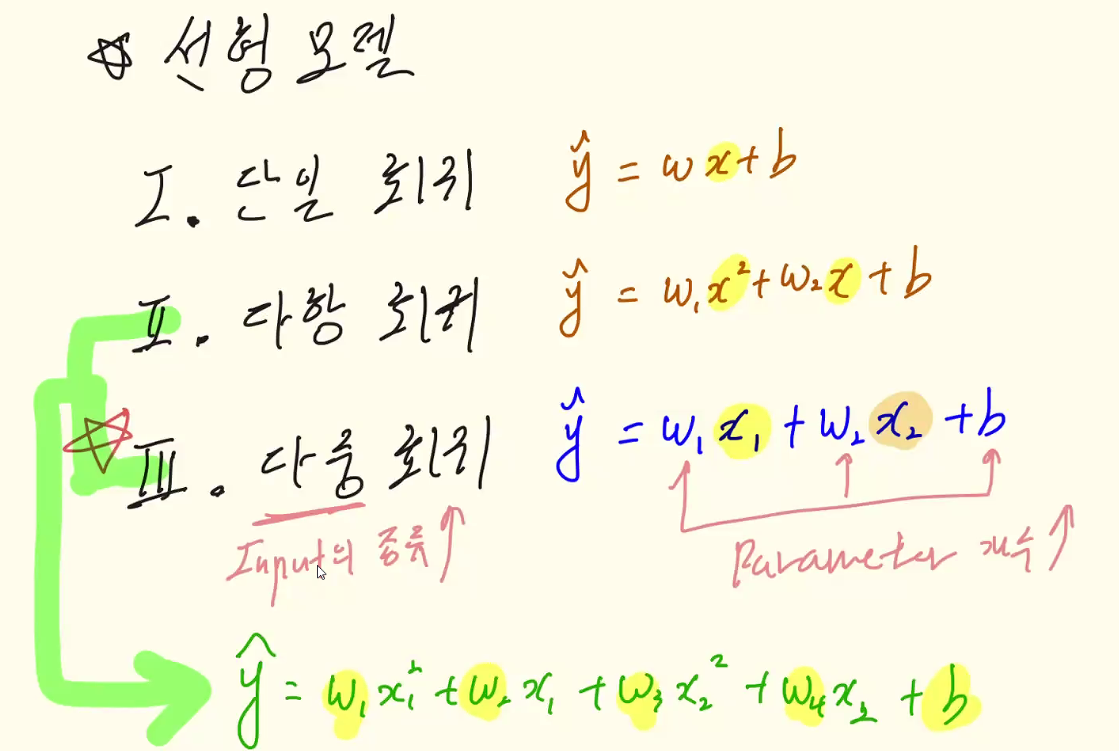 ☆ 선형 모델
I. 단일 회귀 ŷ = wx + b
II. 다항 회귀 ŷ = w₁x² + w₂x + b
☆ III. 다중 회귀 ŷ = w₁x₁ + w₂x₂ + b
Input의 종류↑ Parameter 개수↑
ŷ = w₁x₁² + w₂x₁ + w₃x₂² + w₄x₂ + b